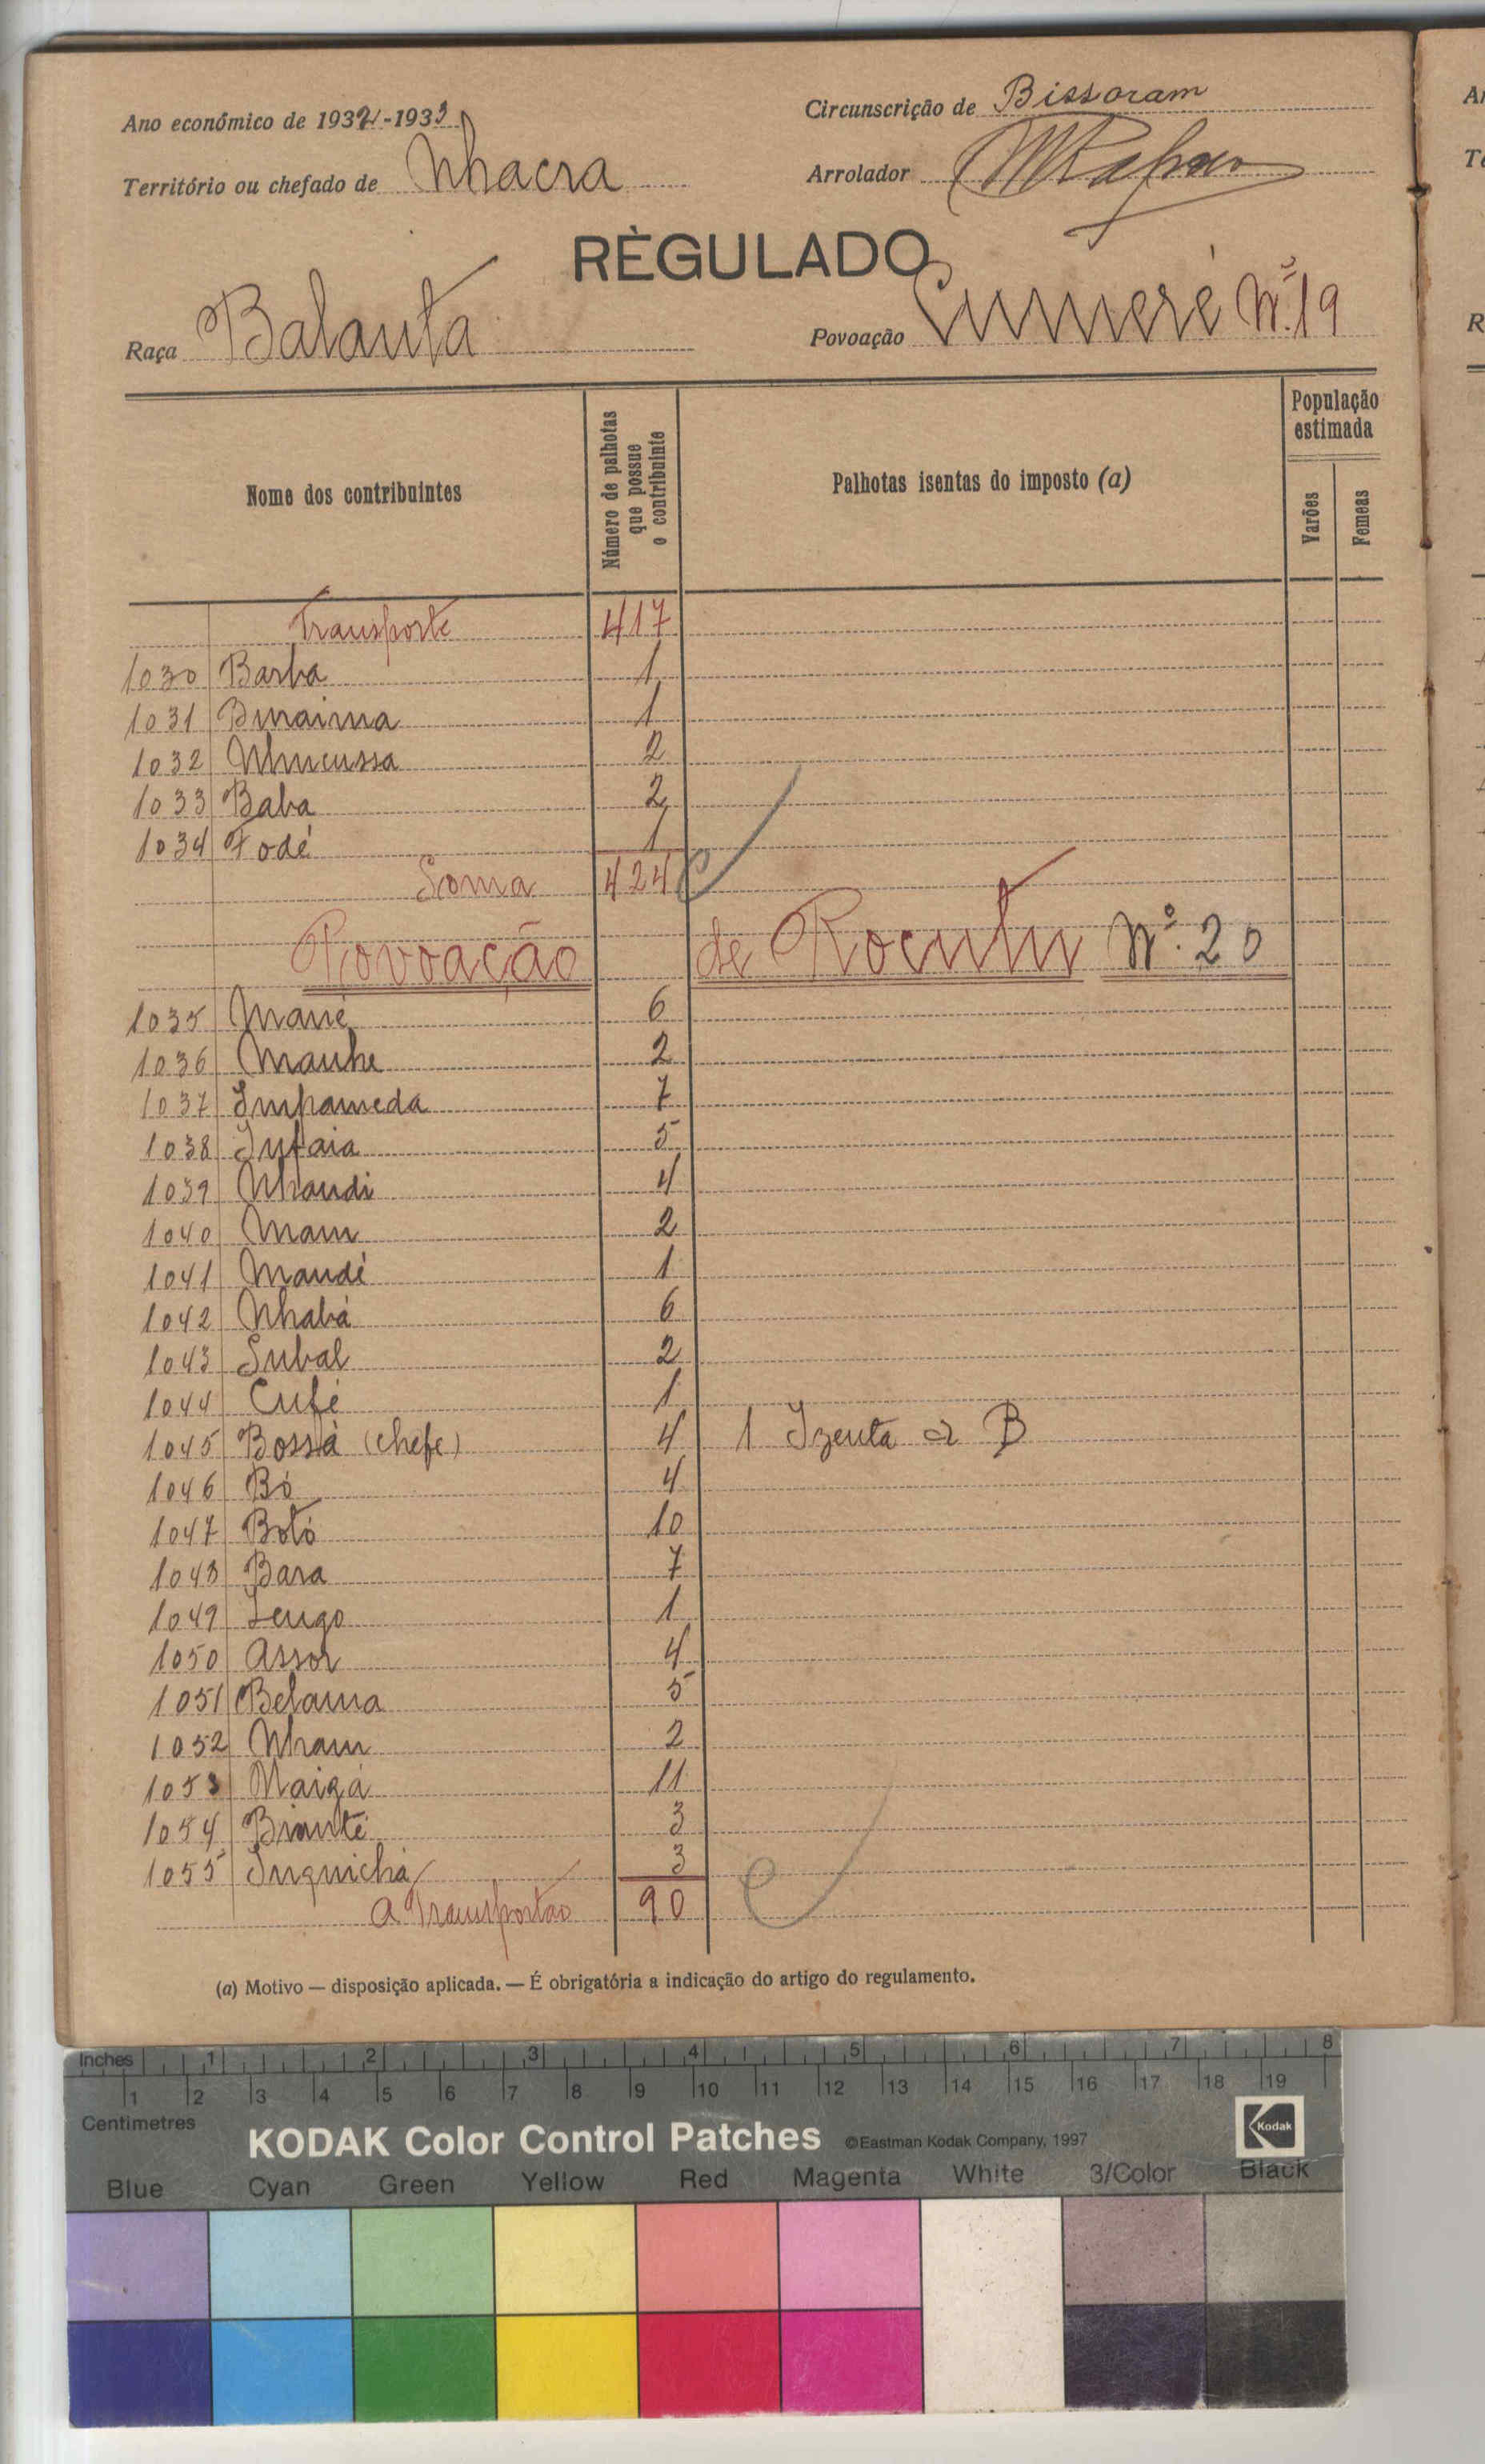 Ano económico de 1932-1933
Circunscrição de Bissoram
Território ou chefado de Nhacra
Arrolador
RÈGULADO
Raça Balanta
Povoação Cumeré Nº 19
Nome dos contribuintes
Número de palhotas que possue o contribuinte
Palhotas isentas do imposto (a)
População estimada
Varões
Femeas
Transporte 417
1030 Barba 1
1031 Bnaima 1
1032 Nhucussa 2
1033 Baba 2
1034 Fodé 1
Soma 424
Povoação de Rocutu Nº. 20
1035 Mané 6
1036 Manhe 2
1037 Impameda 7
1038 Infaia 5
1039 Nhandi 4
1040 Mam 2
1041 Mandé 1
1042 Nhabá 6
1043 Subal 2
1044 Cufé 1
1045 Bossà (chefe) 4 1 Izenta a B
1046 Bó 4
1047 Botó 10
1048 Bara 7
1049 1
1050 Assor 4
1051 Belama 5
1052 Nham 2
1053 Naizá 11
1054 Bianté 3
1055 Inquichá 3
A Transportar 90
(a) Motivo — disposição aplicada. — É obrigatória a indicação do artigo do regulamento.
Inches 1 2 3 4 5 6 7 8
1 2 3 4 5 6 7 8 9 10 11 12 13 14 15 16 17 18 19
Centimetres
KODAK Color Control Patches ©Eastman Kodak Company, 1997 Kodak
Blue Cyan Green Yellow Red Magenta White 3/Color Black